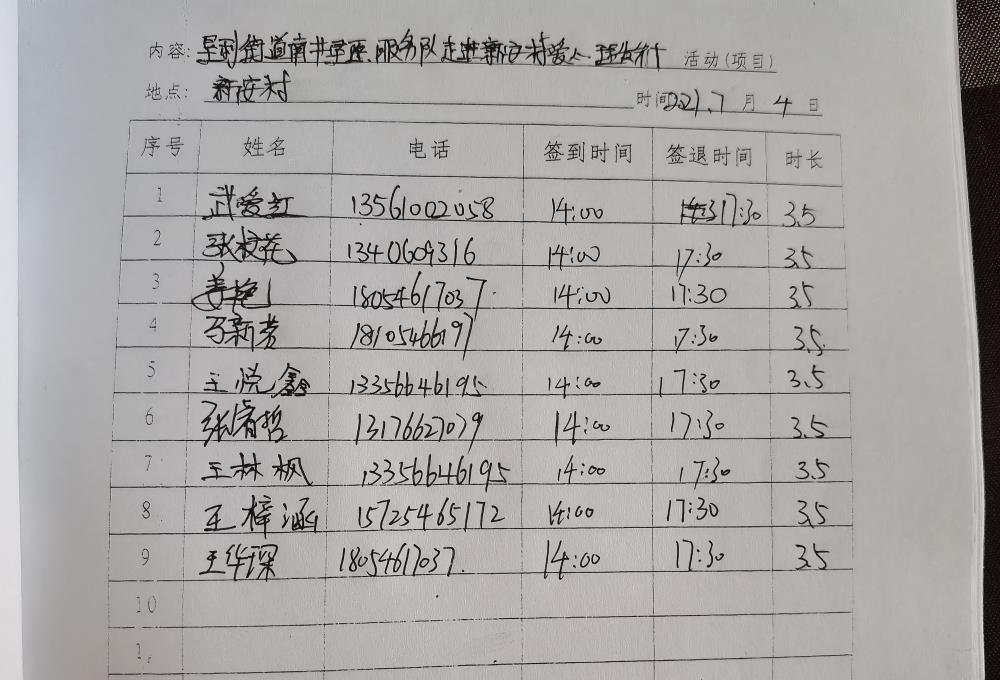 内容: 垦利街道南井学区服务队走进新安村爱心 活动(项目)
地点: 新安村 时间2021.7月4日
序号 姓名 电话 签到时间 签退时间 时长
1 武爱红 13561002058 14:00 17:30 3.5
2 张校花 1340609316 14:00 17:30 3.5
3 姜艳 18054617037 14:00 17:30 3.5
4 马新芳 18105466197 14:00 17:30 3.5
5 王悦鑫 13356646195 14:00 17:30 3.5
6 张睿哲 13176627079 14:00 17:30 3.5
7 王林枫 13356646195 14:00 17:30 3.5
8 王梓涵 15725465172 14:00 17:30 3.5
9 王华琛 18054617037. 14:00 17:30 3.5
10
1